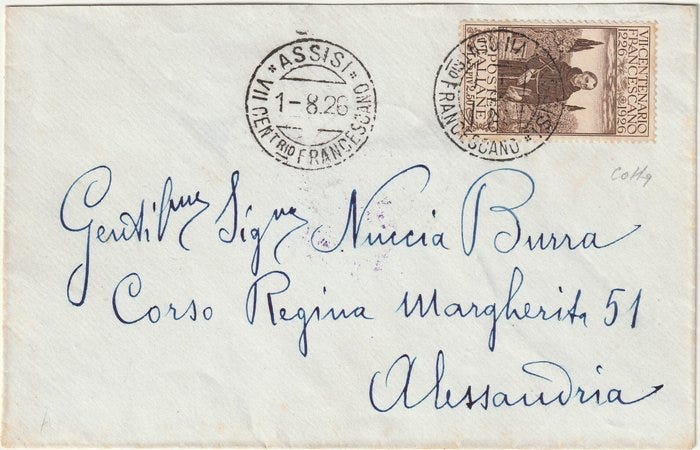 * ASSISI *
VII CENTRIO FRANCESCANO
1-8.26
VII CENTENARIO
FRANCESCANO
1226 1926
POSTE
ITALIANE
FRANCESCANO *
Gentilma Signa Nuccia Burra
Corso Regina Margherita 51
Alessandria